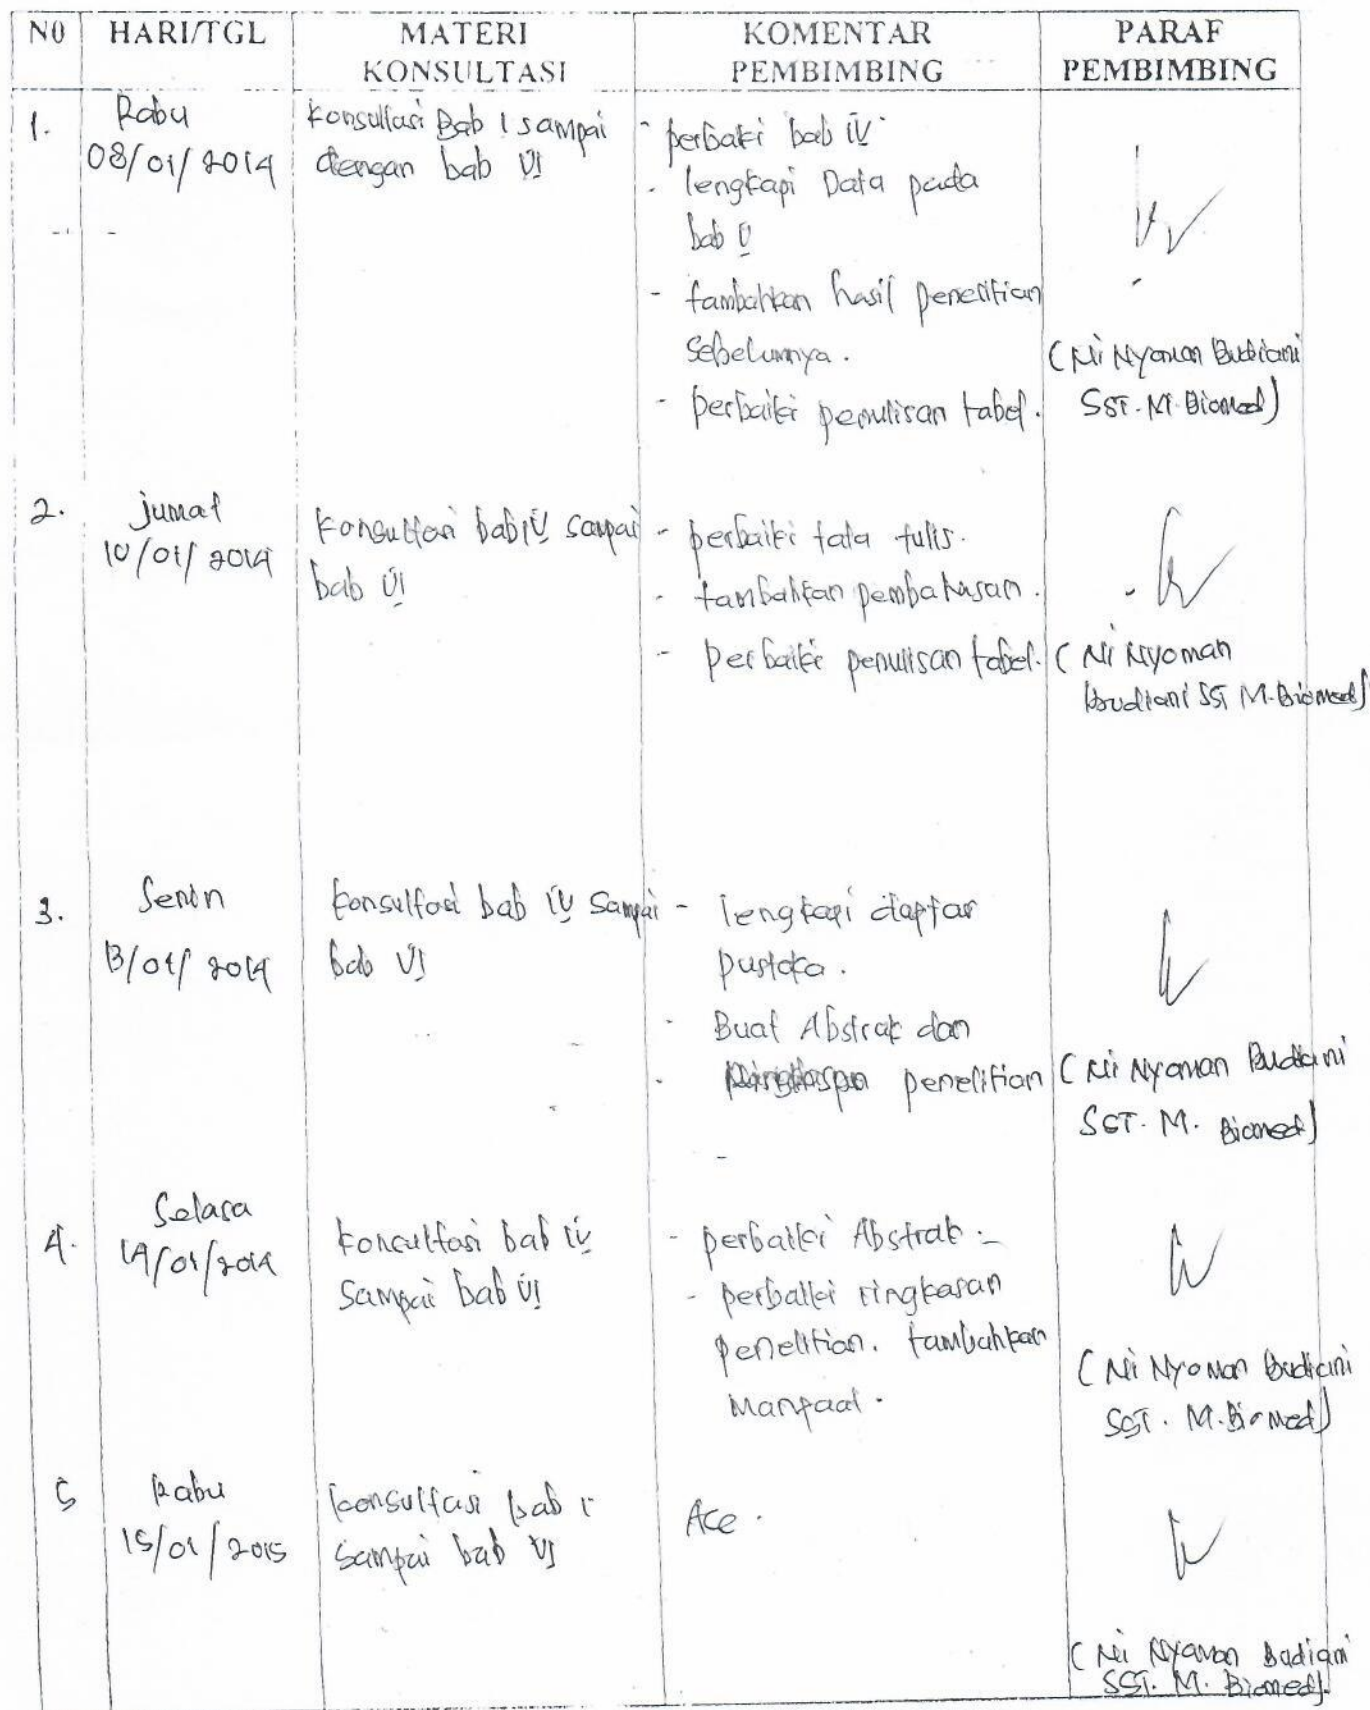 NO HARI/TGL MATERI KONSULTASI KOMENTAR PEMBIMBING PARAF PEMBIMBING
1. Rabu
08/01/2014
konsultasi Bab I sampai
dengan bab VI
- perbaki bab IV
- lengkapi Data pada
bab V
- tambahkan hasil penelitian
sebelumnya.
- perbaiki penulisan tabel.
(Ni Nyoman Budiani
SST. M. Biomed)
2. jumat
10/01/2014
konsultasi bab IV sampai
bab VI
- perbaiki tata tulis.
- tambahkan pembahasan.
- perbaiki penulisan tabel.
(Ni Nyoman
budiani SST M. Biomed)
3. Senin
13/01/2014
konsultasi bab IV sampai
bab VI
- lengkapi daptar
pustaka.
- Buat Abstrak dan
- penelitian
(Ni Nyoman Budiani
SST. M. Biomed)
4. Selasa
14/01/2014
konsultasi bab IV
sampai bab VI
- perbaiki Abstrak.
- perbaiki ringkasan
penelitian. tambahkan
manpaat.
(Ni Nyoman Budiani
SST. M. Biomed)
5 Rabu
15/01/2015
konsultasi bab I
sampai bab VI
Acc.
(Ni Nyoman Budiani
SST. M. Biomed).